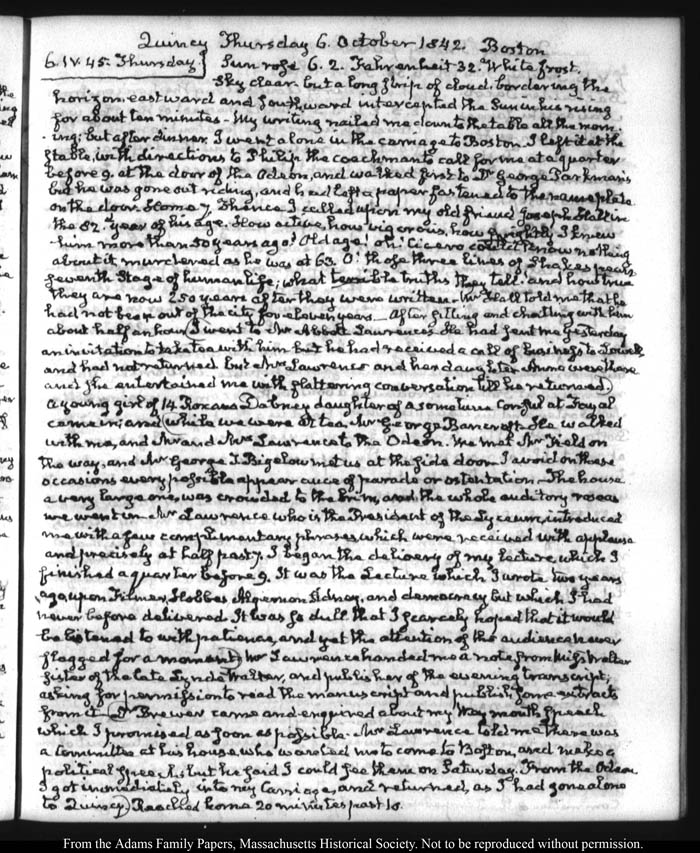 Quincy Thursday 6. October 1842. Boston
6. IV. 45. Thursday. Sun rose 6. 2. Fahrenheit 32. White frost.
Sky clear but a long strip of cloud, bordering the
horizon eastward and Southward intercepted the Sun in his rising
for about ten minutes - My writing nailed me down to the table all the morn-
-ing; but after dinner, I went alone in the carriage to Boston. I left it at the
stable, with directions to Philip the coachman to call for me at a quarter
before 9. at the door of the Odeon, and walked first to Dr George Parkman's
but he was gone out riding, and had left a paper fastened to the name plate
on the door. Home 7. Thence I called upon my old friend Joseph Hall in
the 82d year of his age. How active, how vigorous, how sprightly I knew
him more than 50 years ago! Old age! oh! Cicero could know nothing
about it murdered as he was at 63. O! those three lines of Shakespear's
seventh Stage of human life; what terrible truths they tell! and how true
they are now 250 years after they were written - Mr Hall told me that he
had not been out of the city for eleven years - After sitting and chatting with him
about half an hour, I went to Mr Abbott Lawrence's. He had sent me yesterday
an invitation to take tea with him but he had received a call of business to Lowell
and had not returned but Mrs Lawrence and her daughter Anne were there
and she entertained me with flattering conversation till he returned)
A young girl of 14 Roxana Dabney daughter of a sometime Consul at Fayal
came in; and (while we were at tea, Mr George Bancroft. He walked
with me, and Mr and Mrs Lawrence to the Odeon. We met Mr Field on
the way, and Mr George T. Bigelow met us at the side door. I avoid on these
occasions every possible appearance of parade or ostentation - The house
a very large one, was crowded to the brim, and the whole auditory rose as
we went in - Mr Lawrence who is the President of the Lyceum, introduced
me with a few complimentary phrases, which were received with applause
and precisely at half past 7. I began the delivery of my lecture, which I
finished a quarter before 9. It was the Lecture which I wrote two years
ago, upon Filmer, Hobbes Algernon Sidney, and democracy but which I had
never before delivered. It was so dull that I scarcely hoped that it would
be listened to with patience, and yet the attention of the audience never
flagged for a moment) Mr Lawrence handed me a note from Miss Walter
sister of the late Lynde Walter, and publisher of the evening transcript,
asking for permission to read the manuscript and publish some extracts
from it - Dr Brewer came and enquired about my Weymouth speech
which I promised as soon as possible. Mr Lawrence told me there was
a Committee at his house, who wanted me to come to Boston, and make a
political speech, but he said I could see them on Saturday. From the Odeon
I got immediately into my Carriage, and returned, as I had gone alone
to Quincy) Reached home 20 minutes past 10.
From the Adams Family Papers, Massachusetts Historical Society. Not to be reproduced without permission.